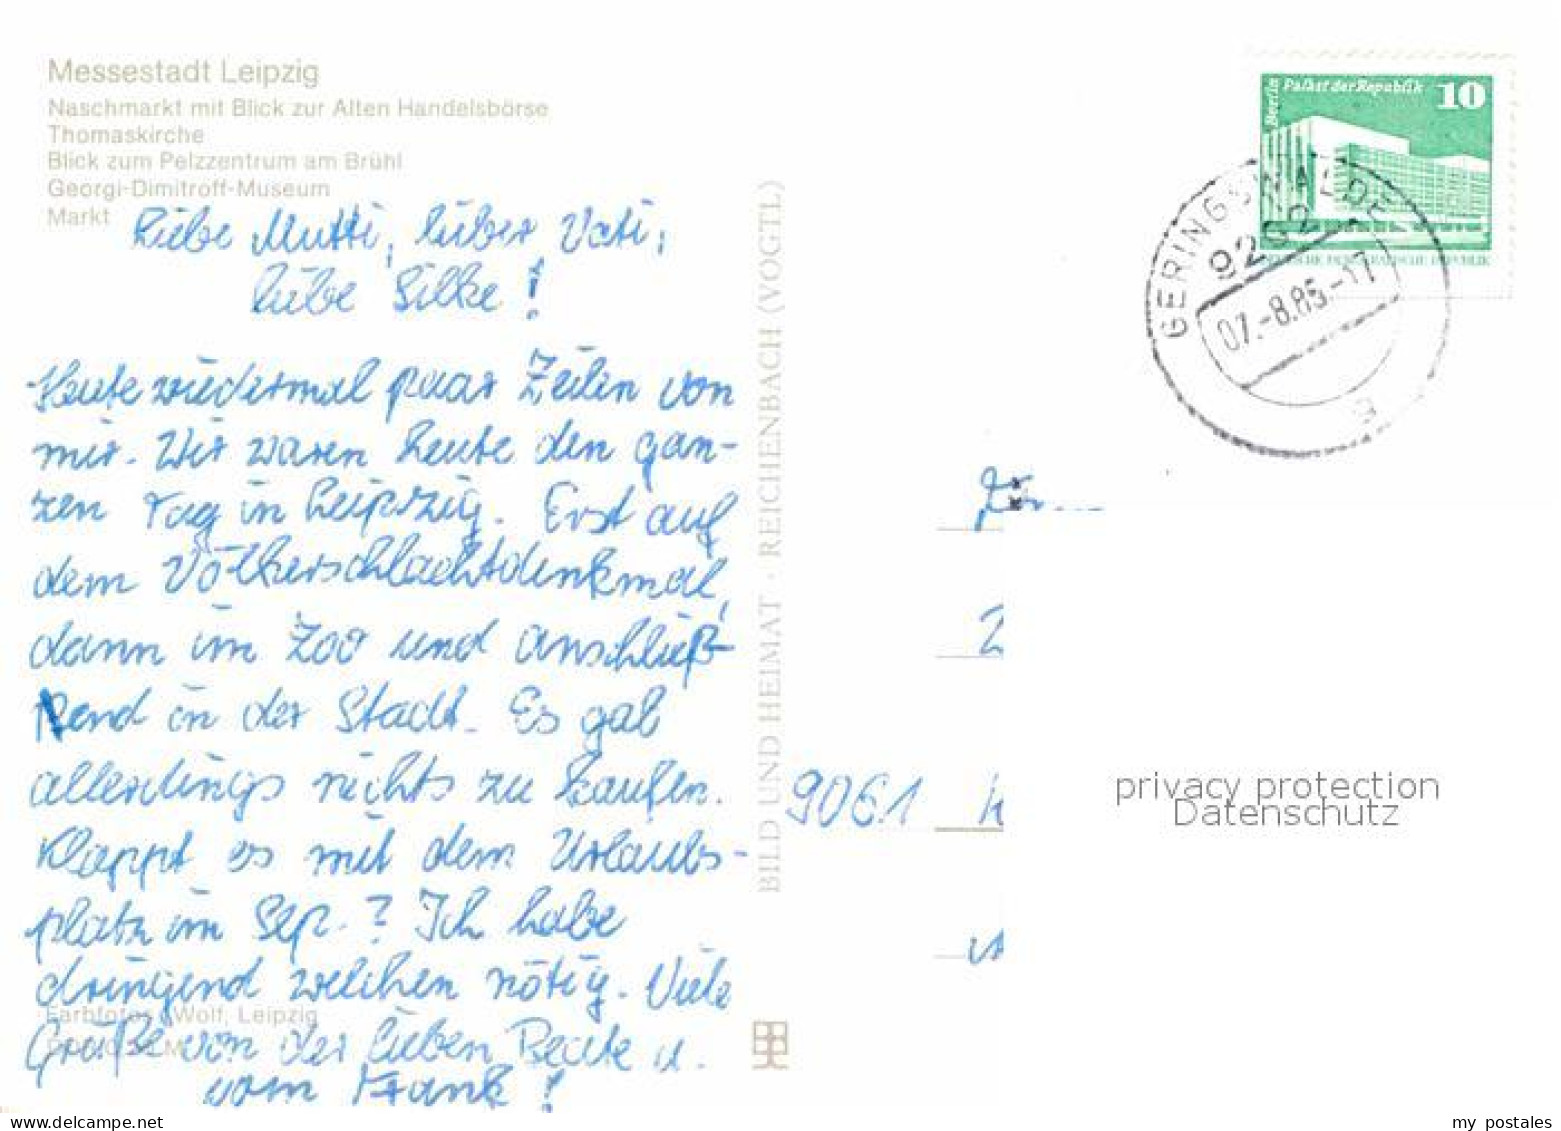 Messestadt Leipzig
Naschmarkt mit Blick zur Alten Handelsbörse
Thomaskirche
Blick zum Pelzzentrum am Brühl
Georgi-Dimitroff-Museum
Markt
Liebe Mutti, lieber Vati,
liebe Silke!
Heute wiedermal paar Zeilen von
mir. Wir waren heute den gan-
zen Tag in Leipzig. Erst auf
dem Völkerschlachtdenkmal,
dann im Zoo und anschließ-
end in der Stadt. Es gab
allerdings nichts zu kaufen.
Klappt es mit dem Urlaubs-
platz im Sep.? Ich habe
dringend welchen nötig. Viele
Grüße von der lieben Beate u.
vom Frank!
Farbfotos: Wolf, Leipzig
BILD UND HEIMAT · REICHENBACH (VOGTL)
Berlin Palast der Republik 10
DEUTSCHE DEMOKRATISCHE REPUBLIK
GERINGSWALDE
9292
07.-8.85.-17
a
9061
privacy protection
Datenschutz
www.delcampe.net
my_postales